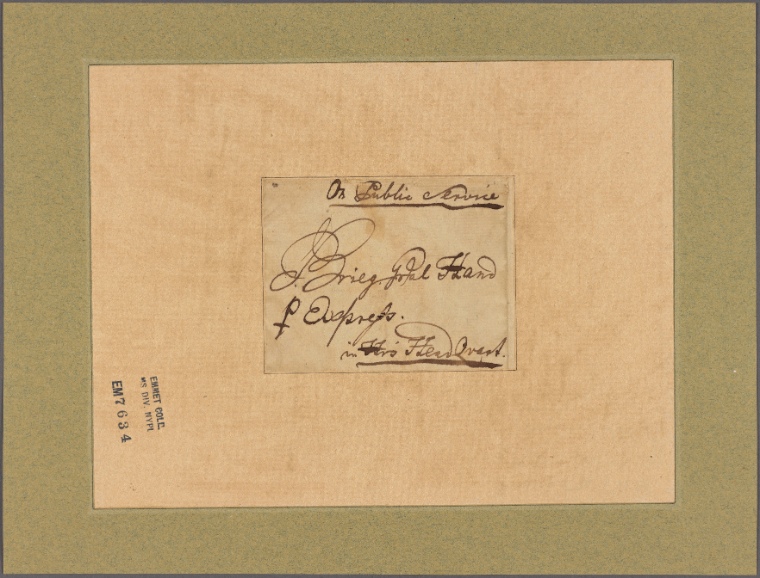 On Public Service
Brieg. Hand
⅌ Express.
in His Head Quart.
EMMET COLL.
MS DIV. NYPL
EM7634